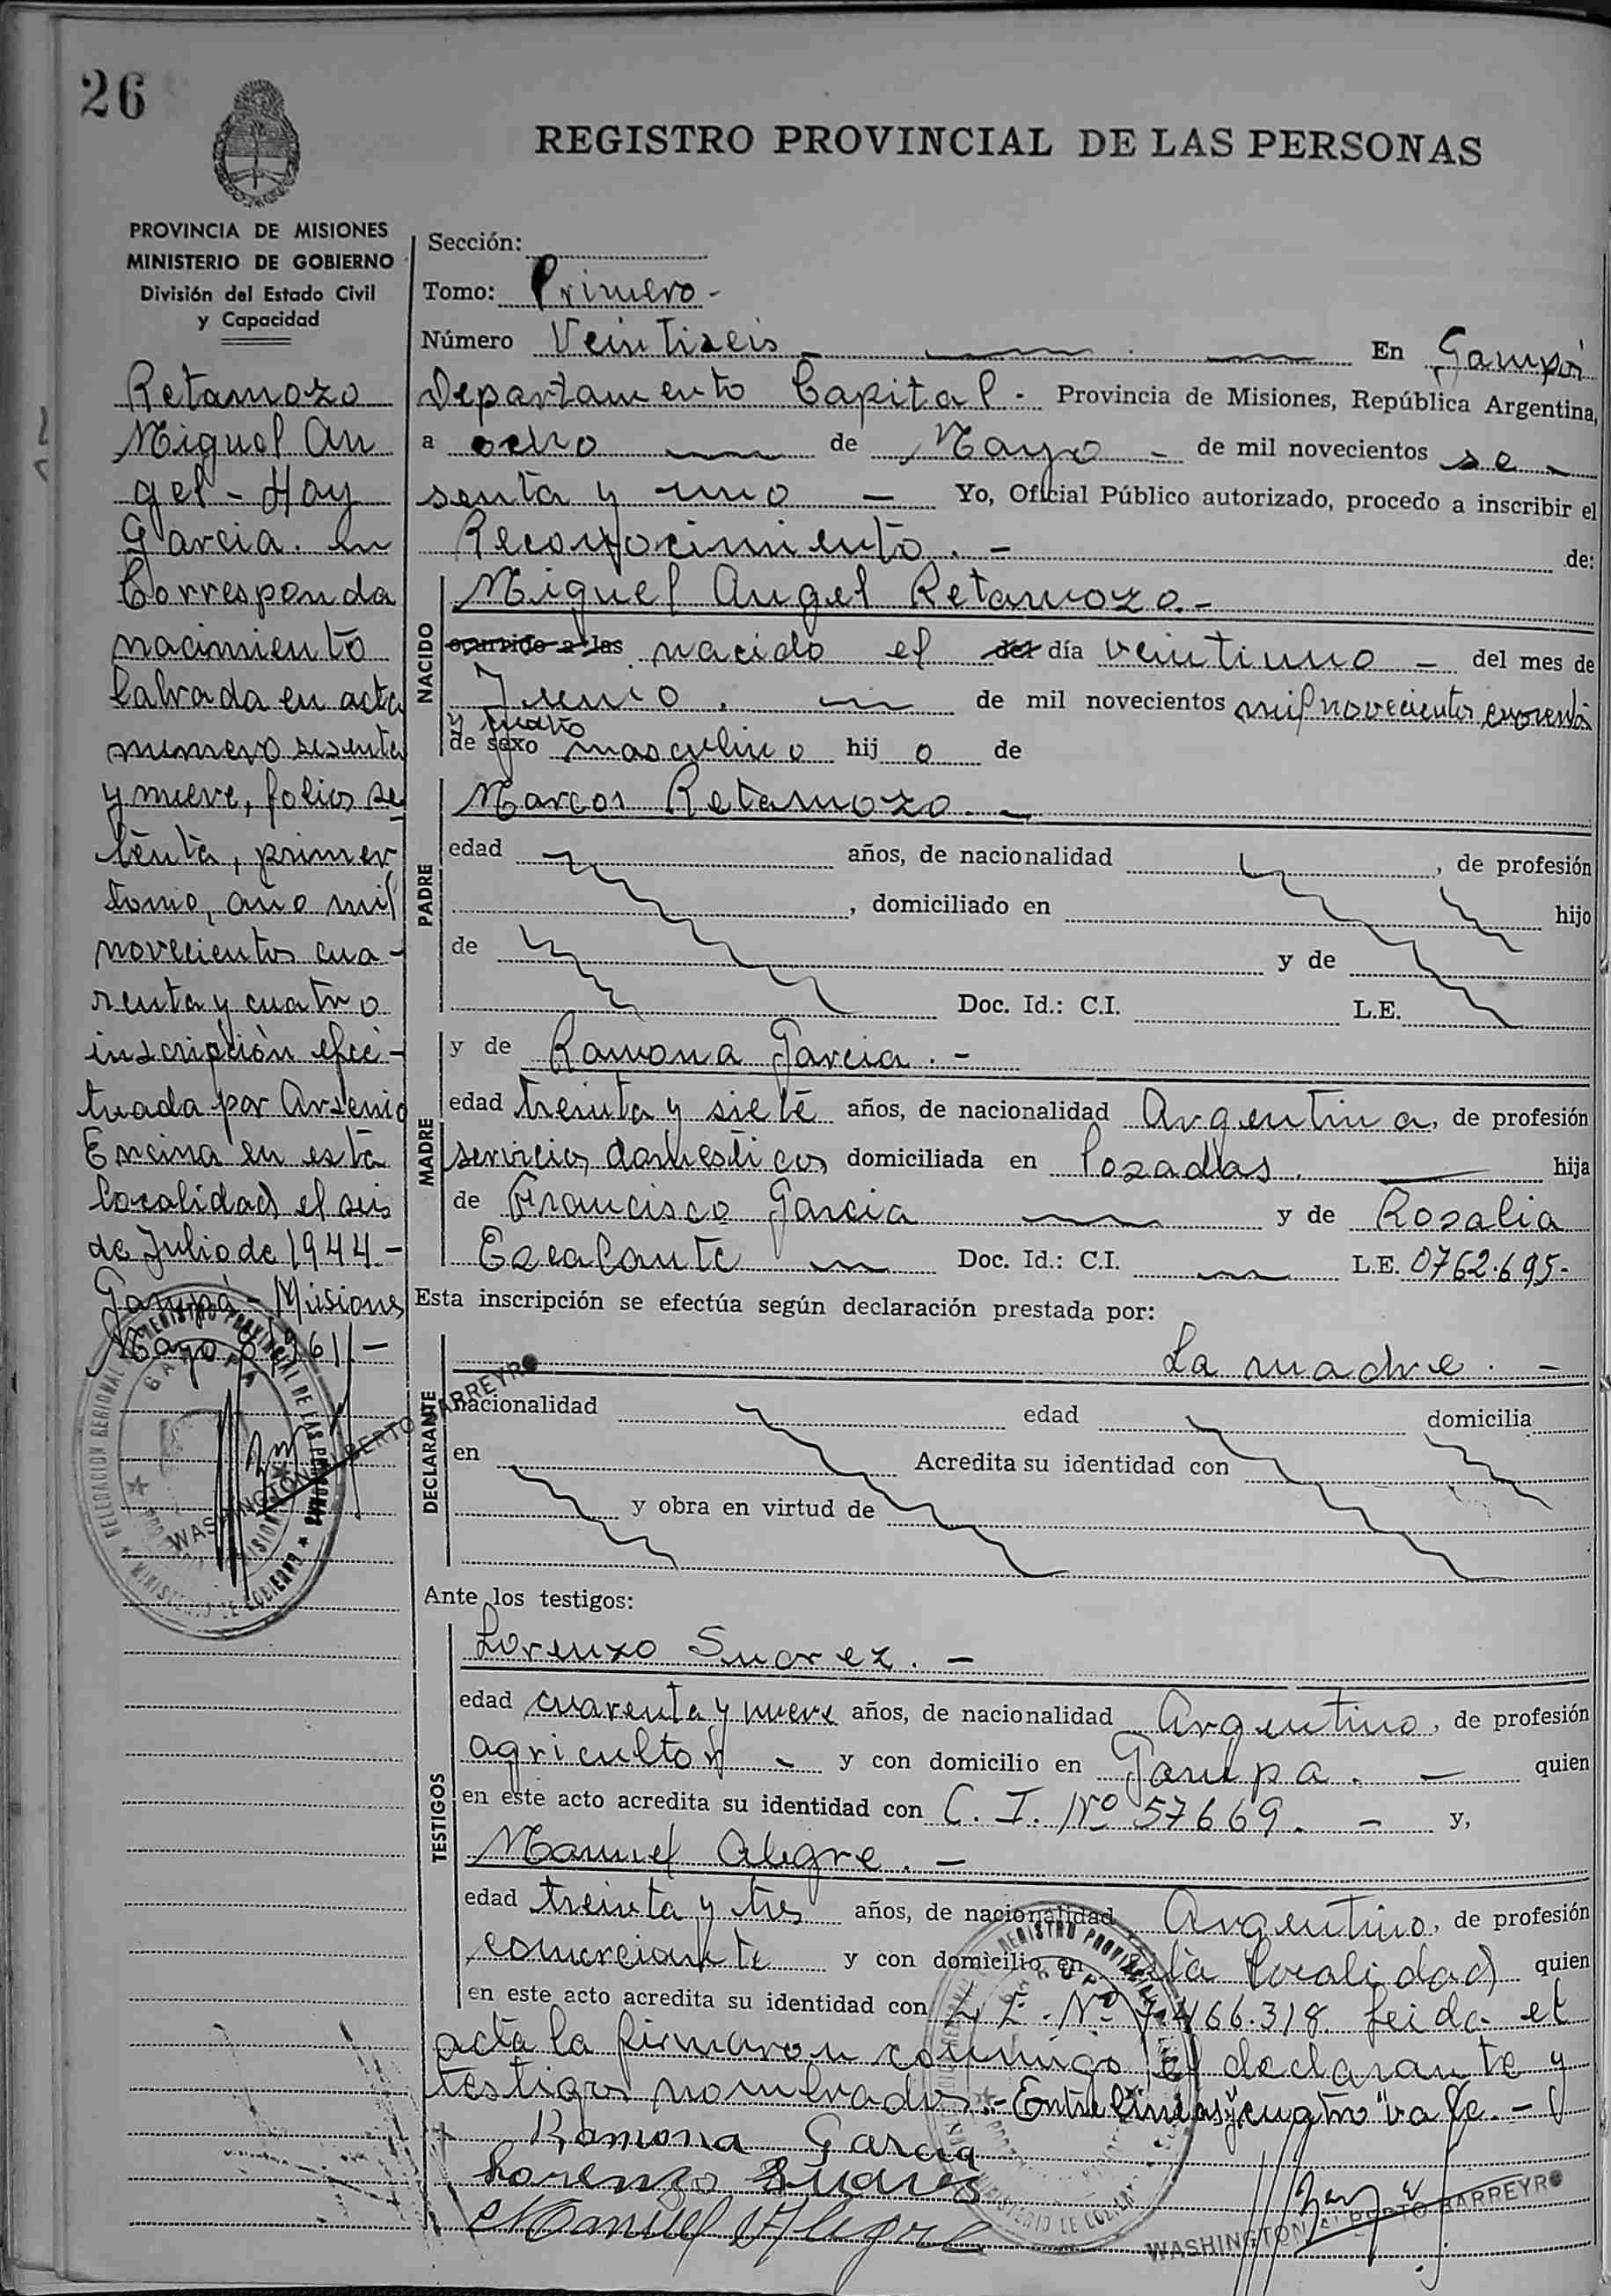 26
REGISTRO PROVINCIAL DE LAS PERSONAS
PROVINCIA DE MISIONES
MINISTERIO DE GOBIERNO
División del Estado Civil
y Capacidad
Retamozo
Miguel An
gel - Hoy
Garcia. en
Corresponda
nacimiento
labrada en acta
numero sesenta
y nueve, folios se
tenta, primer
tomo, año mil
novecientos cua-
renta y cuatro
inscripción efec-
tuada por Arsenio
Encina en esta
localidad el seis
de Julio de 1944.-
Garupá - Misiones
Mayo 8/961/-
Sección:
Tomo: Primero-
Número Veintiseis - En Garupá
Departamento Capital. Provincia de Misiones, República Argentina,
a ocho de Mayo - de mil novecientos se-
senta y uno - Yo, Oficial Público autorizado, procedo a inscribir el
Reconocimiento. - de:
NACIDO
Miguel Angel Retamozo.-
ocurrido a las nacido el del día veintiuno - del mes de
Junio. de mil novecientos mil novecientos cuarenta
y cuatro
de sexo masculino hij o de
PADRE
Marcos Retamozo. -
edad años, de nacionalidad , de profesión
, domiciliado en hijo
de y de
Doc. Id.: C.I. L.E.
MADRE
y de Ramona Garcia. -
edad treinta y siete años, de nacionalidad Argentina, de profesión
servicios domesticos domiciliada en Posadas. hija
de Francisco Garcia y de Rosalia
Escalante Doc. Id.: C.I. L.E. 0762.695-
Esta inscripción se efectúa según declaración prestada por:
DECLARANTE
La madre. -
nacionalidad edad domicilia
en Acredita su identidad con
y obra en virtud de
Ante los testigos:
TESTIGOS
Lorenzo Suarez. -
edad cuarenta y nueve años, de nacionalidad Argentino, de profesión
agricultor - y con domicilio en Garupa. - quien
en este acto acredita su identidad con C. I. Nº 57669. - y,
Manuel Alegre. -
edad treinta y tres años, de nacionalidad Argentino, de profesión
comerciante y con domicilio en la localidad quien
en este acto acredita su identidad con L. E. Nº 7.466.318. Leida el
acta la firmaron conmigo el declarante y
testigos nombrados.- Entre lineas "y cuatro" vale. -
Ramona Garcia
Lorenzo Suares
Manuel Alegre
WASHINGTON ALBERTO BARREYRO
DELEGACION REGIONAL REGISTRO PROVINCIAL DE LAS PERSONAS
GARUPA
MINISTERIO DE GOBIERNO
WASHINGTON ALBERTO BARREYRO